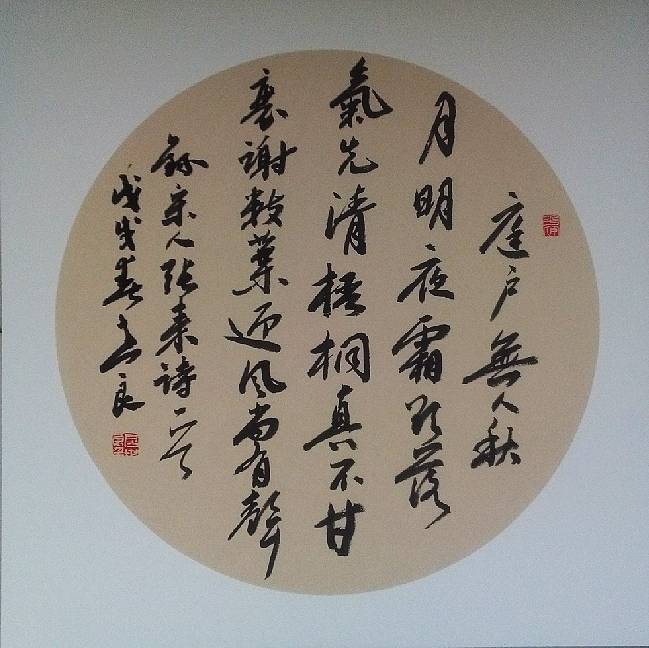 庭戶無人秋
月明夜霜欲落
氣先清梧桐真不甘
衰謝數葉迎风尚有聲
錄宋人张耒詩一首
戊戌春良